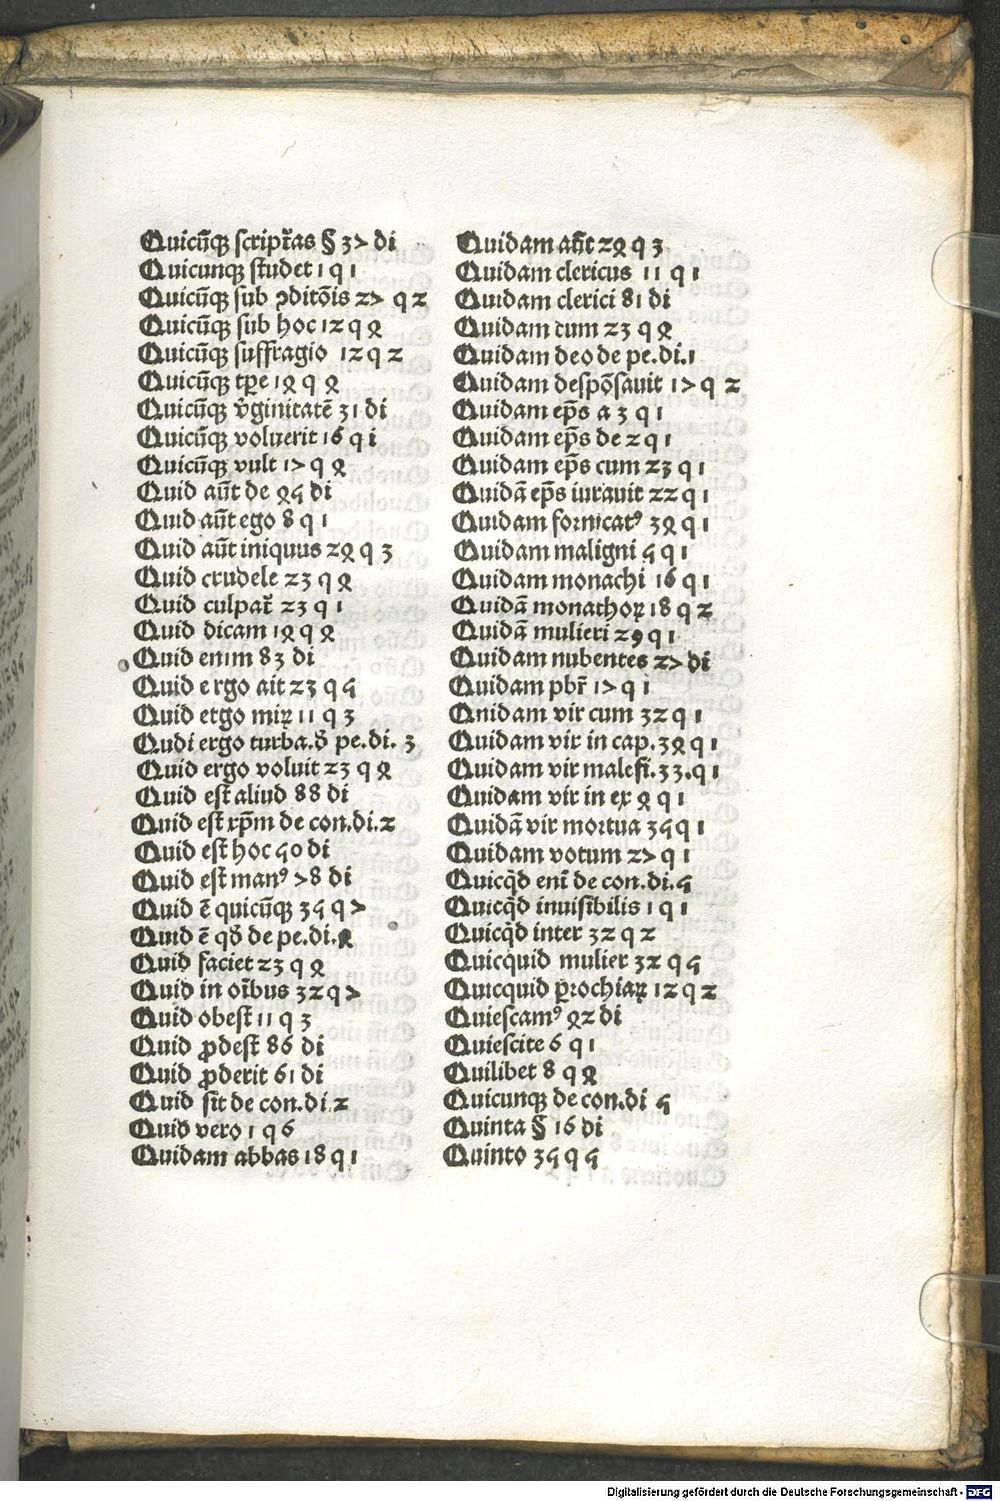 Quicūqꝫ scriptᷓas § 37 di
Quicunqꝫ studet 1 q 1
Quicūqꝫ sub ꝯditōis 27 q 2
Quicūqꝫ sub hoc 12 q 4
Quicūqꝫ suffragio 12 q 2
Quicūqꝫ tꝑe 14 q 4
Quicūqꝫ v̾ginitatē 31 di
Quicūqꝫ voluerit 16 q i
Quicūqꝫ vult 17 q 4
Quid aūt de 45 di
Quid aūt ego 8 q 1
Quid aūt iniquus 24 q 3
Quid crudele 23 q 4
Quid culpat̄ 23 q 1
Quid dicam 14 q 4
Quid enim 83 di
Quid e rgo ait 23 q 5
Quid etgo miꝝ 11 q 3
Qudi ergo turba.d̄ pe.di. 3
Quid ergo voluit 23 q 4
Quid est aliud 88 di
Quid est xp̄m de con.di.2
Quid est hoc 50 di
Quid est manꝰ 78 di
Quid ē quicūqꝫ 35 q 7
Quid ē qd̄ de pe.di.4
Quid faciet 23 q 4
Quid in oībus 32 q 7
Quid obest 11 q 3
Quid ꝓdest 86 di
Quid ꝓderit 61 di
Quid sit de con.di 2
Quid vero 1 q 6
Quidam abbas 18 q 1
Quidam aūt 24 q 3
Quidam clericus 11 q 1
Quidam clerici 81 di
Quidam cum 23 q 4
Quidam deo de pe.di.1
Quidam despōsauit 17 q 2
Quidam ep̄s a 3 q 1
Quidam ep̄s de 2 q 1
Quidam ep̄s cum 23 q 1
Quidā ep̄s iurauit 22 q 1
Quidam fornicatꝰ 34 q 1
Quidam maligni 5 q 1
Quidam monachi 16 q 1
Quidā monathoꝝ 18 q 2
Quidā mulieri 29 q 1
Quidam nubentes 27 di
Quidam pbr̄ 17 q 1
Qnidam vir cum 32 q 1
Quidam vir in cap.34 q 1
Quidam vir malefi.33.q 1
Quidam vir in ex 4 q 1
Quidā vir mortua 35 q 1
Quidam votum 27 q 1
Quicq̄d enī de con.di.5
Quicq̄d inuisibilis 1 q 1
Quicq̄d inter 32 q 2
Quicquid mulier 32 q 5
Quicquid ꝑrochiaꝝ 12 q 2
Quiescamꝰ 42 di
Quiescite 6 q 1
Quilibet 8 q 4
Quicunqꝫ de con.di 5
Quinta § 16 di
Quinto 35 q 5
Digitalisierung gefördert durch die Deutsche Forschungsgemeinschaft - DFG